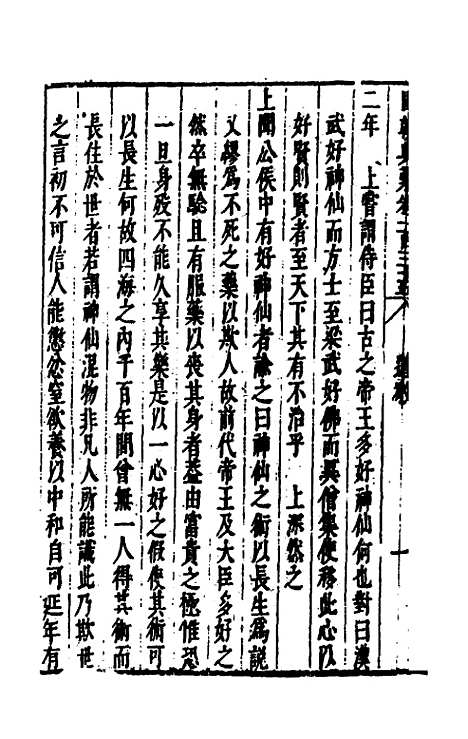 二年　上嘗謂侍臣曰古之帝王多好神仙何也對曰漢
武好神仙而方士至梁武好佛而異僧集使移此心以
好賢則賢者至天下其有不治乎　上深然之
上聞公侯中有好神仙者諭之曰神仙之術以長生爲説
又繆爲不死之藥以欺人故前代帝王及大臣多好之
然卒無驗且有服藥以喪其身者葢由富貴之極惟恐
一旦身殁不能久享其樂是以一心好之假使其術可
以長生何故四海之内千百年間曾無一人得其術而
長住於世者若謂神仙混物非凡人所能識此乃欺世
之言初不可信人能懲忿窒欲養以中和自可延年有